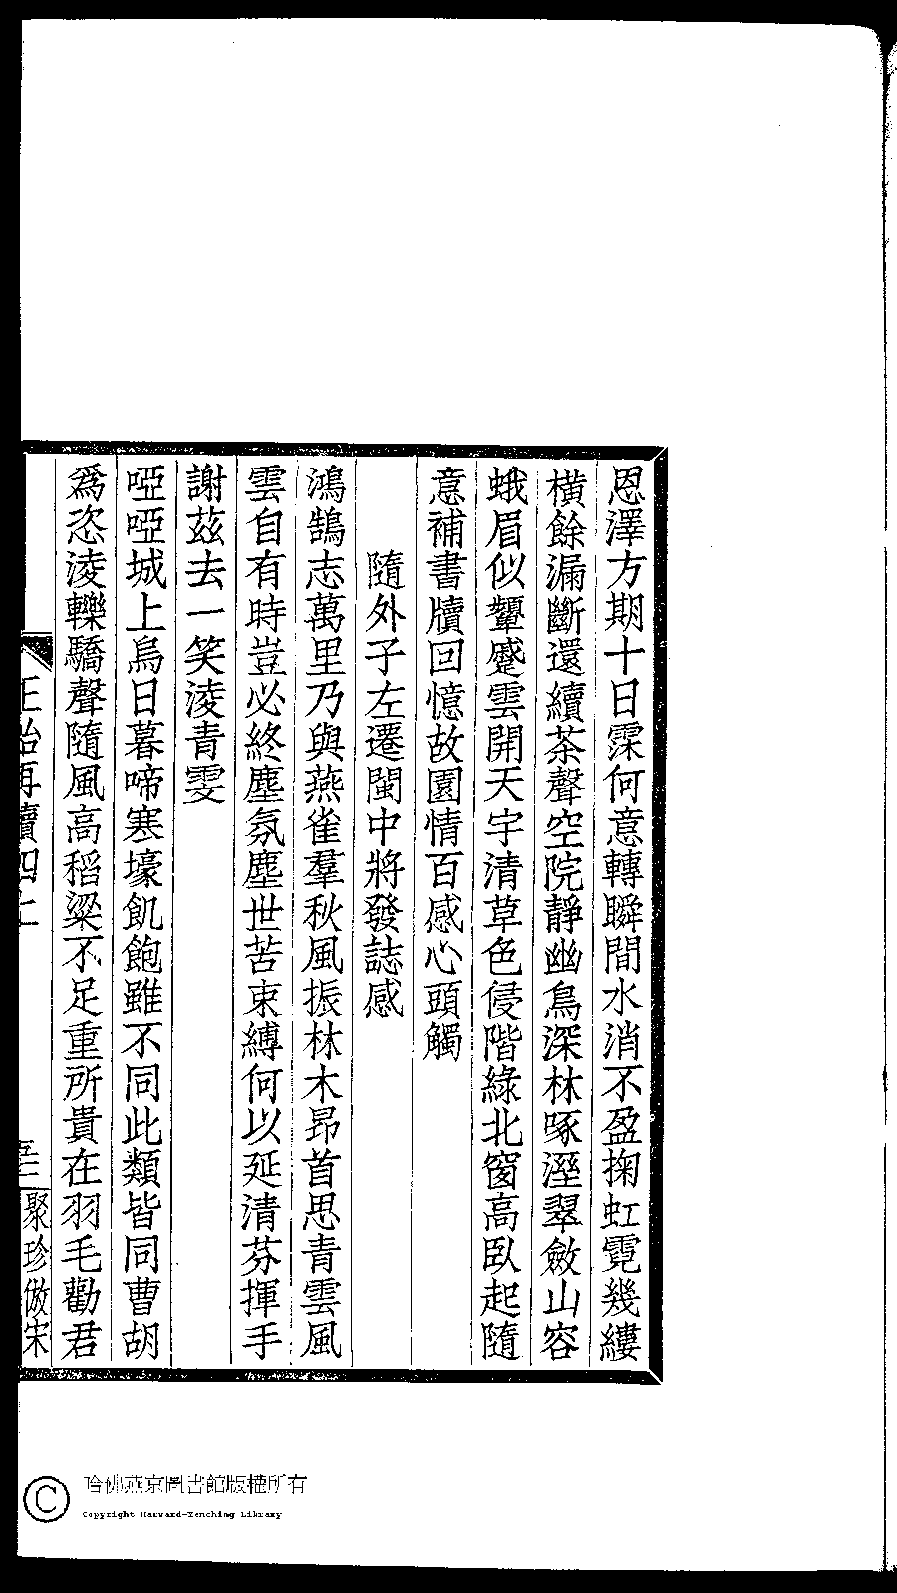 恩澤方期十日霂何意轉瞬間水消不盈掬虹霓幾縷
橫餘漏斷還續茶聲空院靜幽鳥深林啄溼翠斂山容
蛾眉似顰蹙雲開天宇清草色侵階綠北窗高臥起隨
意補書牘回憶故園情百感心頭觸
隨外子左遷閩中將發誌感
鴻鵠志萬里乃與燕雀羣秋風振林木昂首思青雲風
雲自有時豈必終塵氛塵世苦束縛何以延清芬揮手
謝茲去一笑淩青雯
啞啞城上烏日暮啼寒壕飢飽雖不同此類皆同曹胡
為恣淩轢驕聲隨風高稻粱不足重所貴在羽毛勸君
正始再續四上
聚珍倣宋
哈佛燕京圖書館版權所有
Copyright Harvard-Yenching Library